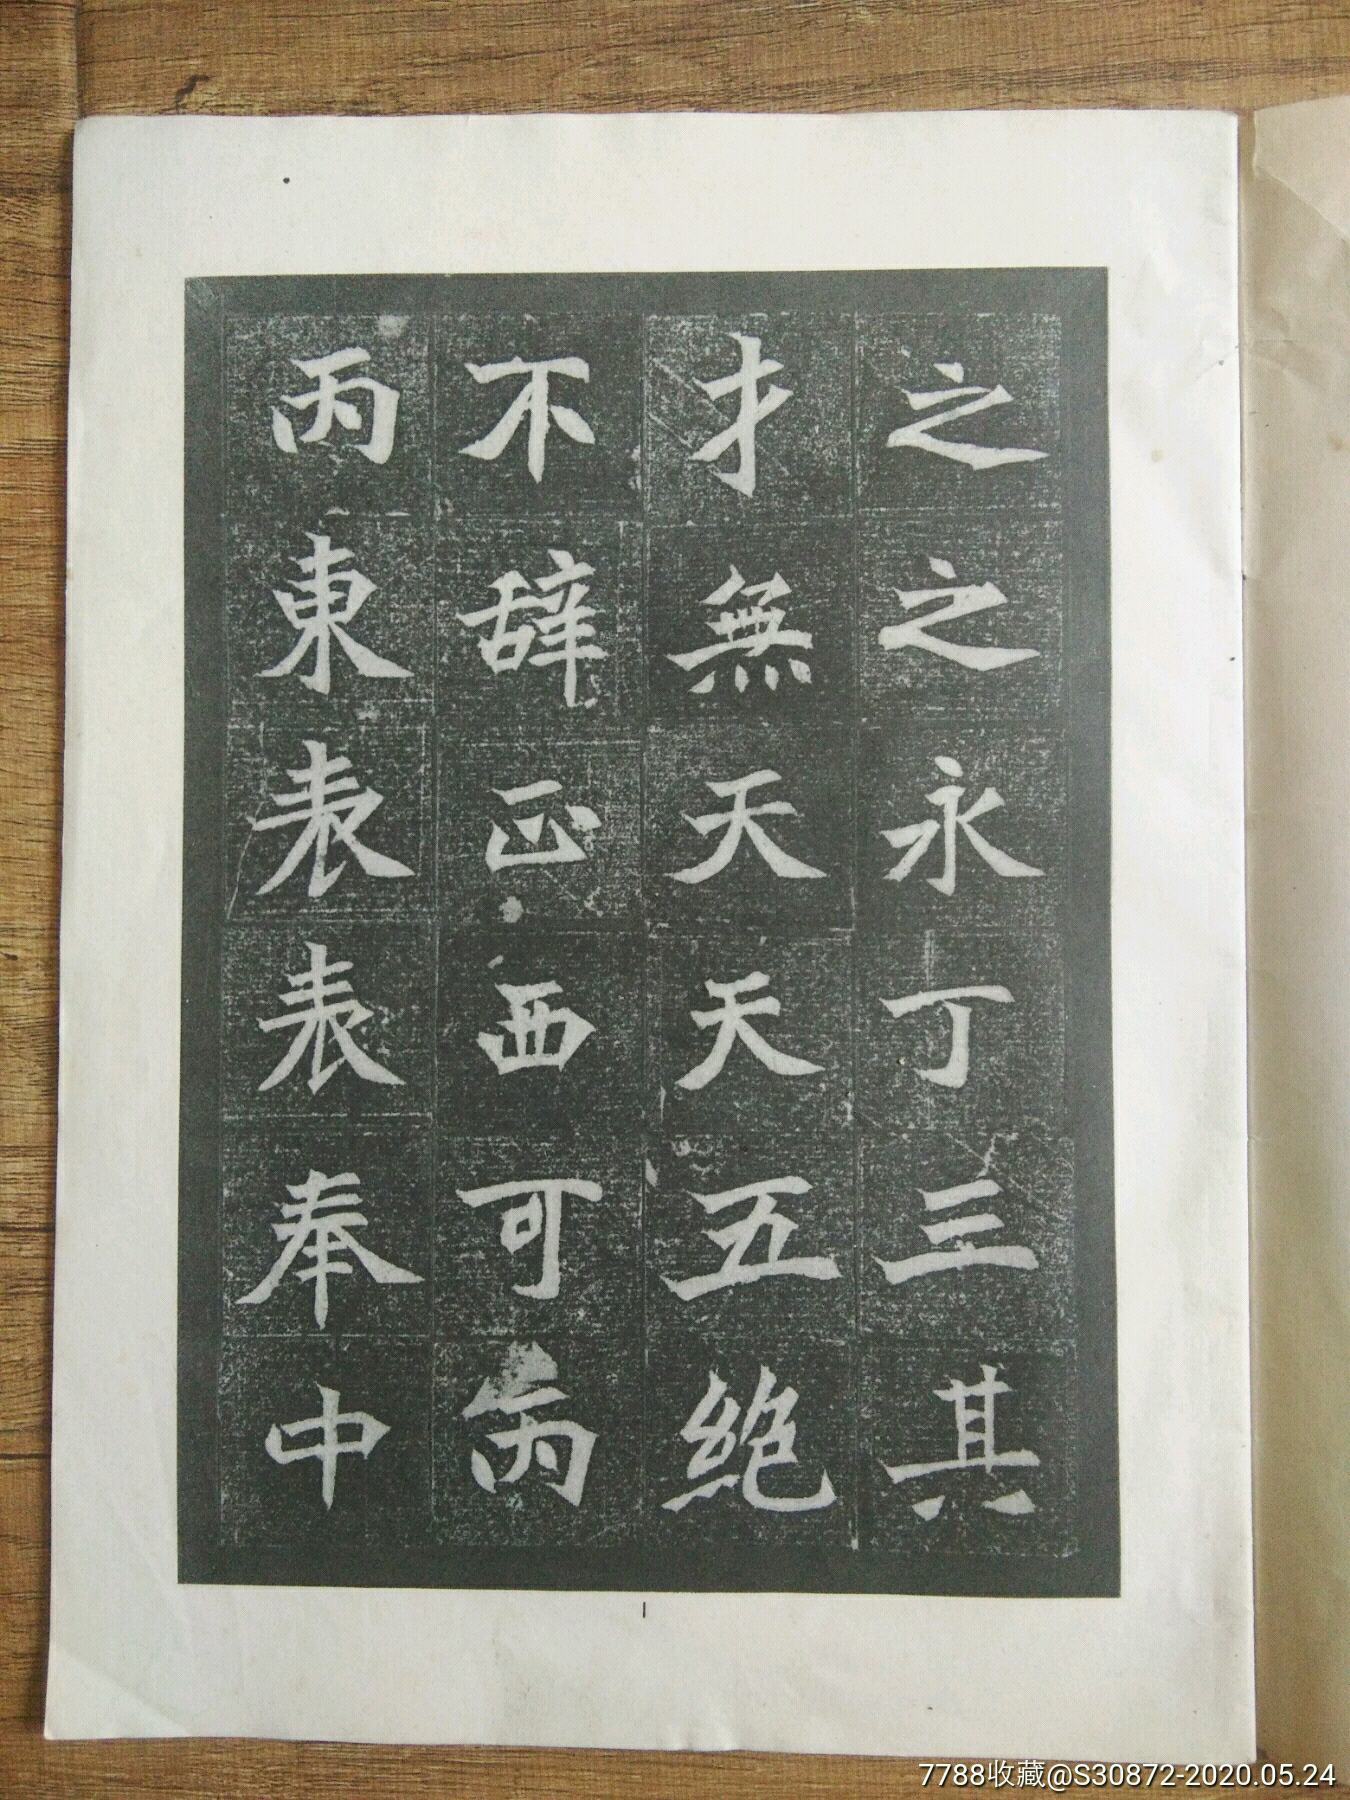 之之永丁三其
才無天天五绝
不辞正西可丙
丙東表表奉中
7788收藏@S30872-2020.05.24